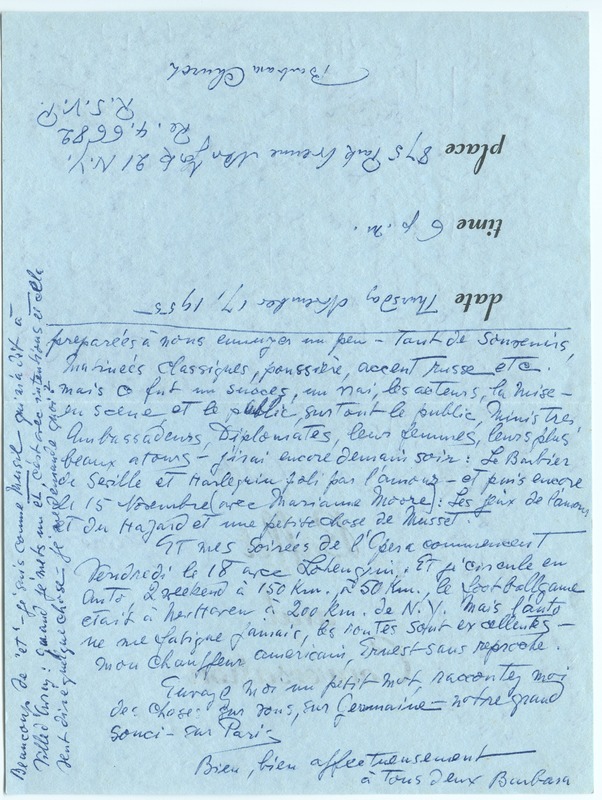 Barbara Church
R.S.V.P.
Re. 4.6682
place 875 Park Avenue New York 21 N.Y.
time 6 p.m.
date Thursday November 17, 1955
preparées à nous ennuyer un peu - tant de souvenirs,
matinées classiques, poussière, accent russe etc.
mais ce fut un succès, un vrai, les acteurs, la mise-
en scène et le public, surtout le public, ministres,
Ambassadeurs, Diplomates, leurs femmes, leurs plus
beaux atours - j'irai encore demain soir: Le Barbier
de Seville et Harlequin poli par l'amour - et puis encore
le 15 Novembre (avec Marianne Moore): Les jeux de l'amour
et du Hazard et une petite chose de Musset
Et mes soirées de l'Opera commencent
Vendredi le 18 avec Lohengrin. Et je circule en
auto le weekend à 150 Km. 50 Km., le footballgame
était à New Haven à 200 km. de N.Y. mais l'auto
ne me fatigue jamais, les routes sont excellentes -
mon chauffeur americain, Ernest sans reproche.
Envoyez moi un petit mot, racontez moi
des choses sur vous, sur Germaine - notre grand
souci - sur Paris
Bien, bien affectueusement
à tous deux Barbara
Beaucoup de "et" - je suis comme Musil qui m'a dit à
Ville d'Avray: quand je mets un et c'est avec intention et cela
veut dire quelque chose, je me demande quoi?